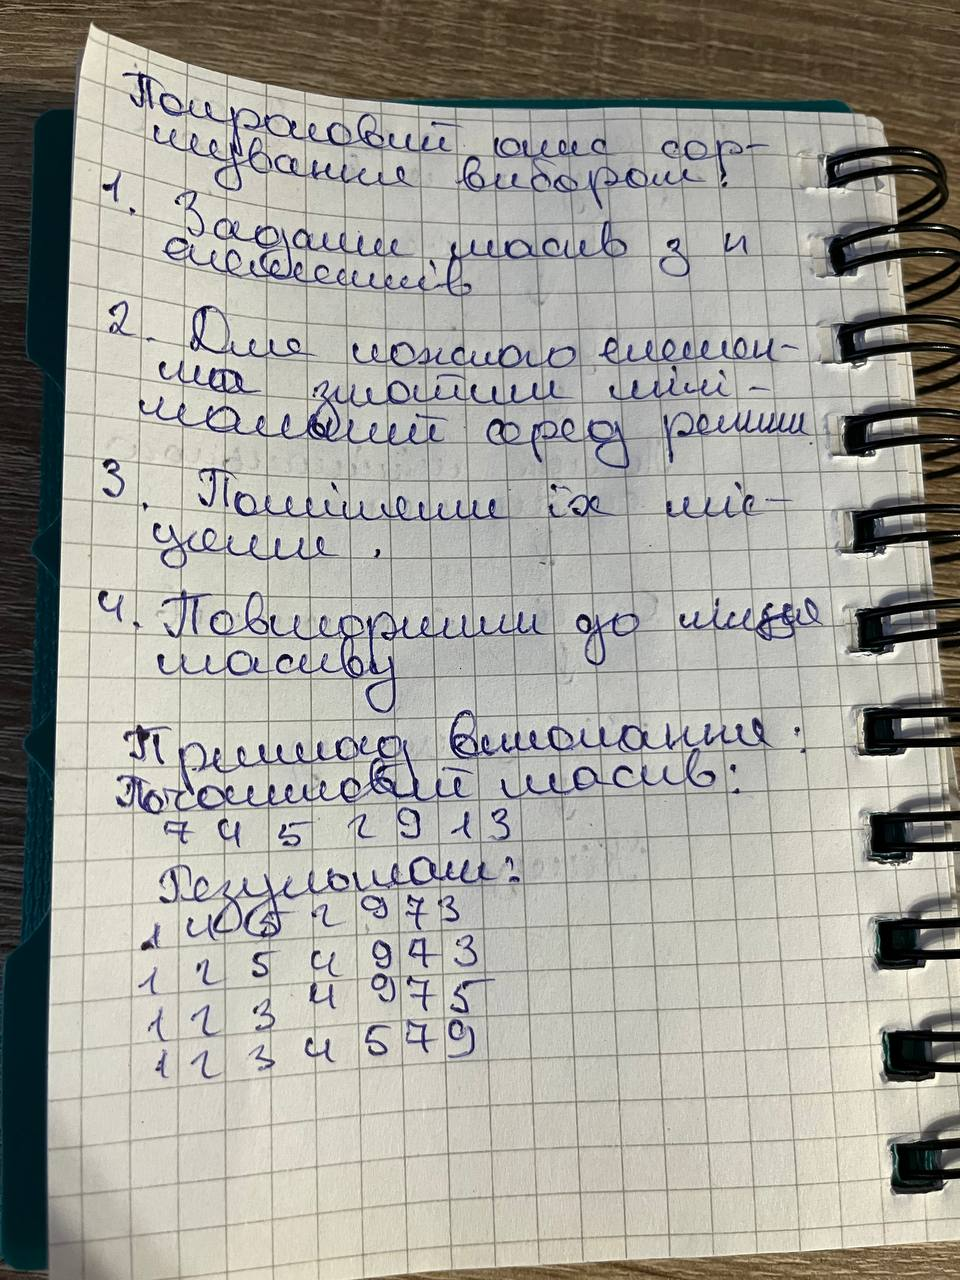 Покроковий опис сор-
тування вибором:
1. Задати масив з n
елементів
2. Для кожного елемен-
та знайти міні-
мальний серед решти
3. Поміняти їх міс-
цями.
4. Повторити до кінця
масиву
Приклад виконання:
Початковий масив:
7 4 5 2 9 1 3
Результат:
1 4 5 2 9 7 3
1 2 5 4 9 7 3
1 2 3 4 9 7 5
1 2 3 4 5 7 9